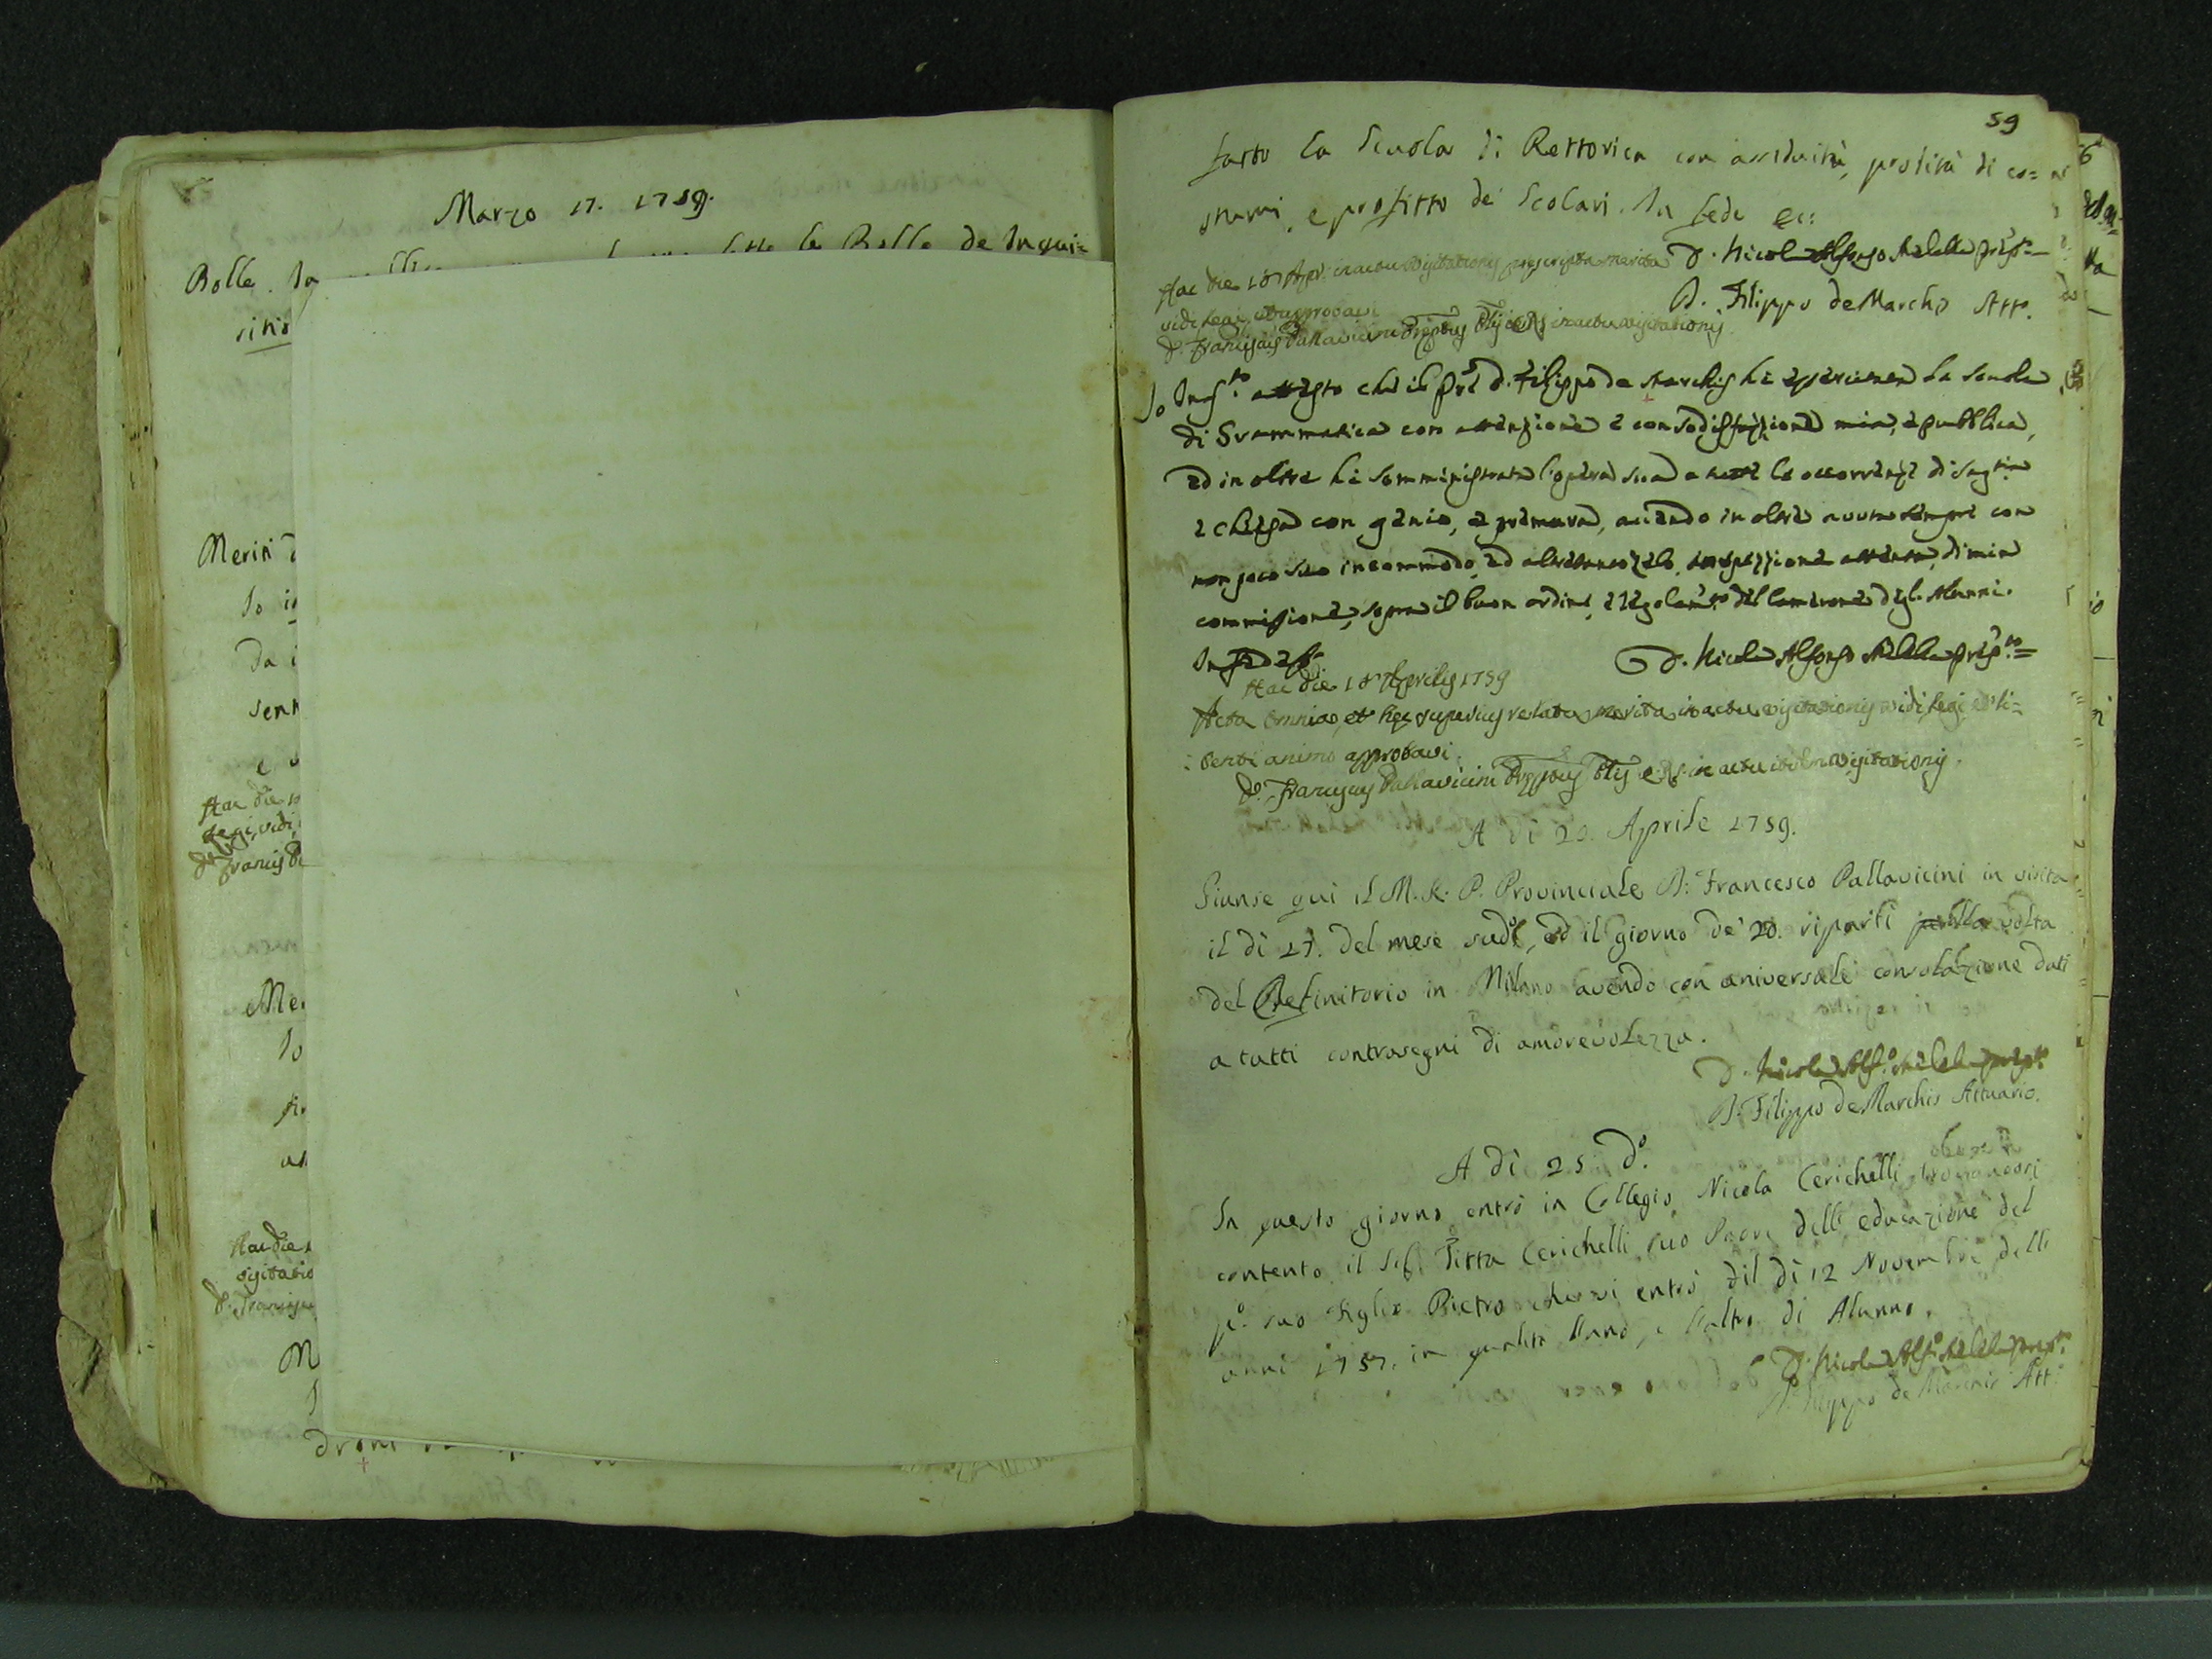 Marzo 17. 1759.
Bolle. In lette le Bolle de Inqui=
sitis
Meriti
Io
Da
Hac die
legi, vidi
D. Francis
Mer
Io
Hac die
visitatio
D. Francis
M
59
fatto la Scuola di Rettorica con assiduità, probità di co=
stumi, e profitto de' Scolari. In fede ec:
D. Nicola Alfonso Melella prep.to
Hac die 18 Apr. in actu visitationis prescripta merita
D. Filippo de Marchis Att.o
vidi legi, et approbavi
D. Franciscus Pallavicini Prepptus Plis in actu visitationis
Io Inf.to attesto che il Pre D. Filippo de Marchis hà essercitata la Scuola
di Grammatica con attenzione e con sodisfazione mia, e pubblica,
ed in oltre hà somministrata l'opera sua a tutte le occorrenze di Sag.tia
e Chiesa con genio, e premura, avendo in oltre avuta sempre con
non poco suo incommodo, ed altretanto zelo, attenta, di mia
commissione, sopra il buon ordine, e regolam.to del Camerone degl'Alunni.
In fede
D. Nicola Alfonso Melella prep.to =
Hac die 18 Aprilis 1759
Acta omnia, et hęc superius relata merita in actu visitationis vidi, legi, et li=
: benti animo approbavi.
D. Franciscus Pallavicini Prepptus Plis in actu visitationis.
A dì 20. Aprile 1759.
Giunse qui il M. R. P. Provinciale D: Francesco Pallavicini in visita
il dì 17. del mese sud.o, ed il giorno de' 20. ripartì volta
del Definitorio in Milano avendo con universale consolazione dati
a tutti contrasegni di amorevolezza.
D. Nicola Alf.o Melella prep.to
D. Filippo de Marchis Attuario.
A dì 25 d.o
In questo giorno entrò in Collegio Nicola Cerichelli trovandosi
contento il Sig. Titta Cerichelli suo Padre dell'educazione del
p.o suo figlio Pietro che vi entrò dil dì 12 Novembre dell'
anni 1757. in qualità l'uno, e l'altro di Alunno.
D. Nicola Alf.o Melella prep.to
D. Filippo de Marchis Att.